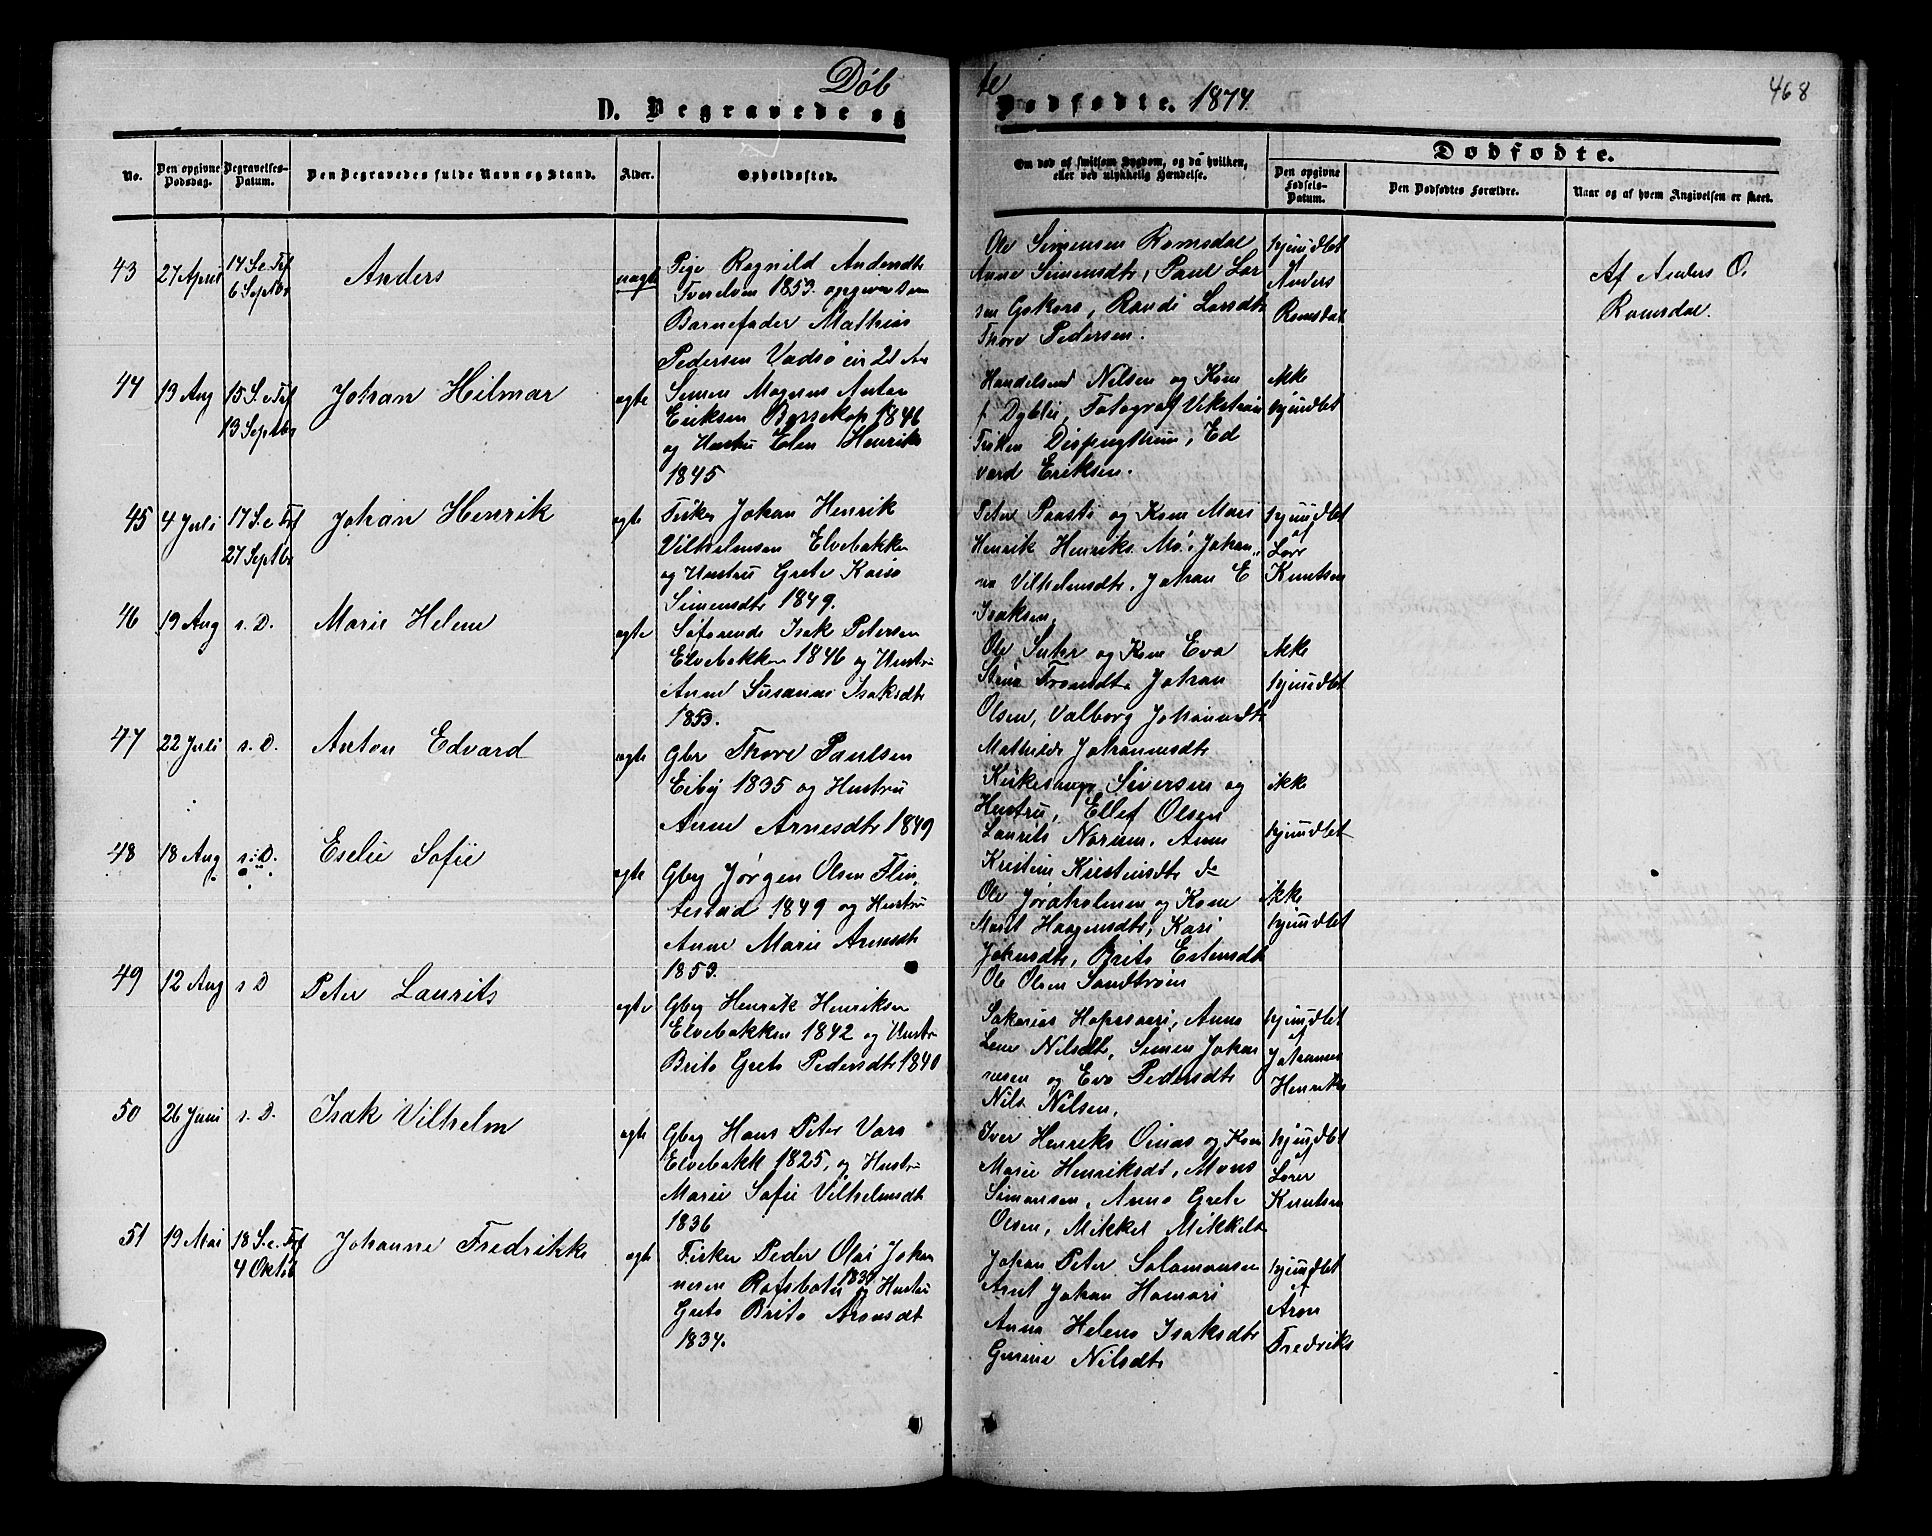 Døbte
468
D. Begravede og Dødfødte. 1874.
No.
Den opgivne Dødsdag.
Begravelses-Datum.
Den Begravedes fulde Navn og Stand.
Alder.
Opholdssted.
Om død af smitsom Sygdom, og da hvilken,
eller ved ulykkelig Hændelse.
Dødfødte.
Den opgivne Fødsels-Datum.
Den Dødfødtes Forældre.
Naar og af hvem Angivelsen er skeet.
43 27 April 14 S. e. Tref 6 Septbr Anders uægte
Pige Ragnild Andersdtr
Tverelven 1853. opgiven som
Barnefader Mathias
Pedersen Vadsø cir 21 Aar
Ole Simensen Romsdal
Anne Simensdtr, Paul Lar
sen Gokors, Randi Larsdtr
Thore Pedersen.
hjemdbt
Anders
Romsdal
Af Anders O.
Romsdal.
44 13 Aug 15 S. e. Tref 13 Septbr Johan Heilmar ægte
Simen Magnus Anton
Eriksen Bossekop 1846
og Hustru Elen Henriks
1845
Handelsmd Nilsen og Kone
f. Dyblie, Fotograf Vikstrøm
Ed
vard Eriksen.
ikke
hjemdbt
45 4 Juli 17 S. e. Tref 27 Septbr Johan Henrik ægte
Fisker Johan Henrik
Vilhelmsen Elvebakken
og Hustru Grete Kaisa
Simensdtr 1849.
Peter Paasti og Kone Mari
Henrik Henriks. Mø. Johan
na Vilhelmsdtr, Johan E
Isaksen.
hjemdbt
af
Lars
Knutsen
46 19 Aug s. D. Marie Helene ægte
Søfarende Isak Petersen
Elvebakken 1846 og Hustru
Anne Susanna Isaksdtr
1853.
Ole Suhr og Kone Eva
Stina Fransdtr Johan
Olsen, Valborg Johannesdtr
Mathilde Johannesdtr
ikke
hjemdbt
47 22 Juli s. D. Anton Edvard ægte
Gbr Thore Paulsen
Eiby 1835 og Hustru
Anne Arnesdtr 1849
Kirkesanger Siversen og
Hustru, Ellef Olsen
Laurits Norum, Anne
Kristine Kristensdtr do
ikke
hjemdbt
48 18 Aug s. D. Eselie Sofie ægte
Gbg Jørgen Olsen Flin
testad 1849 og Hustru
Anne Marie Arnesdtr
1853.
Ole Jøraholmen og Kone
Marit Haagensdtr, Kari
Johnsdtr, Brita Estensdtr
Ole Olsen Sandstrøm
ikke
hjemdbt
49 12 Aug s D Peter Laurits ægte
Gbg Henrik Henriksen
Elvebakken 1842 og Hustr
Brita Greta Pedersdtr 1840
Sakarias Hapesaari, Anna
Lena Nilsdtr, Simen Johan
nesen og Eva Pedersdtr
Nils Nilsen.
hjemdbt
af
Johannes
Henriks
50 26 Juni s. D. Isak Vilhelm ægte
Gbg Hans Peter Vara
Elvebakk 1825, og Hustru
Marie Sofie Vilhelmsdt
1836
Iver Henriks Oinas og Kone
Marie Henriksdt, Mons
Simonsen, Anna Grete
Olsen, Mikkel Mikkels
hjemdbt
af
Larer
Knutsen
51 19 Mai 18 S. e. Tref 4 Oktob Johanne Fredrikke ægte
Fisker Peder Olai Johan
nesen Rafsbotn 1837 og Hustru
Greta Brita Aronsdt
1834.
Johan Peter Salamonsen
Aret Johan Hamari
Anna Helena Isaksdtr
Gurine Nilsdtr
hjemdbt
af
Aron
Fredriks